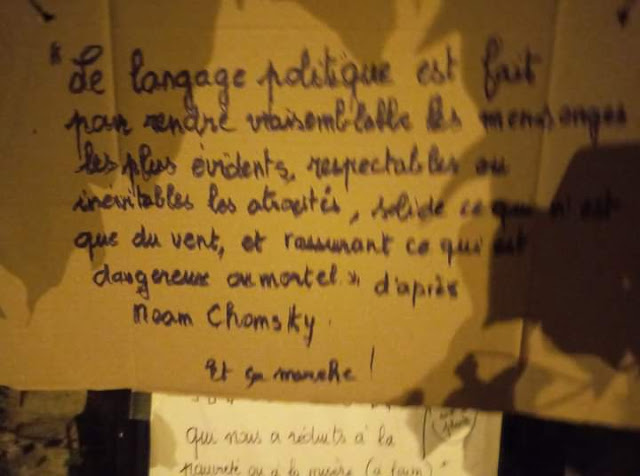 "Le langage politique est fait
pour rendre vraisemblable les mensonges
les plus évidents, respectables ou
inévitables les atrocités, solide ce qui n'est
que du vent, et rassurant ce qui est
dangereux ou mortel." d'après
Noam Chomsky.
Et ça marche !
qui nous a réduits à la
pauvreté ou à la misère (à faim)